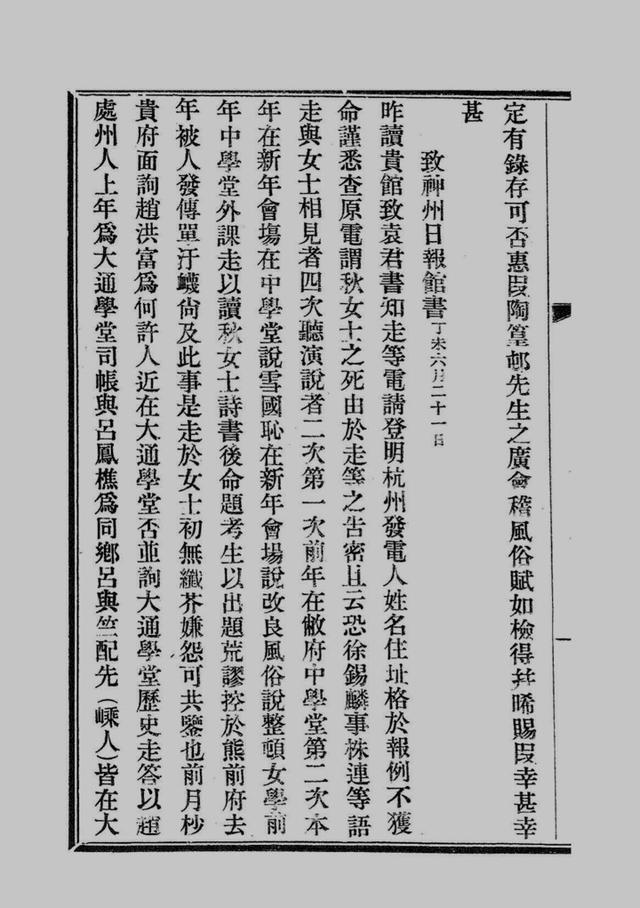 定有錄存可否惠叚陶篁邨先生之廣會稽風俗賦如檢得幷唏賜叚幸甚幸
甚
致神州日報館書丁未六月二十一日
昨讀貴館致袁君書知走等電請登明杭州發電人姓名住址格於報例不獲
命謹悉查原電謂秋女士之死由於走等之告密且云恐徐錫麟事株連等語
走與女士相見者四次聽演說者二次第一次前年在敝府中學堂第二次本
年在新年會塲在中學堂說雪國恥在新年會場說改良風俗說整頓女學前
年中學堂外課走以讀秋女士詩書後命題考生以出題荒謬控於熊前府去
年被人發傳單汙衊尙及此事是走於女士初無纖芥嫌怨可共鑒也前月杪
貴府面詢趙洪富爲何許人近在大通學堂否並詢大通學堂歷史走答以趙
處州人上年爲大通學堂司帳與呂鳳樵爲同鄉呂與竺配先（嵊人）皆在大